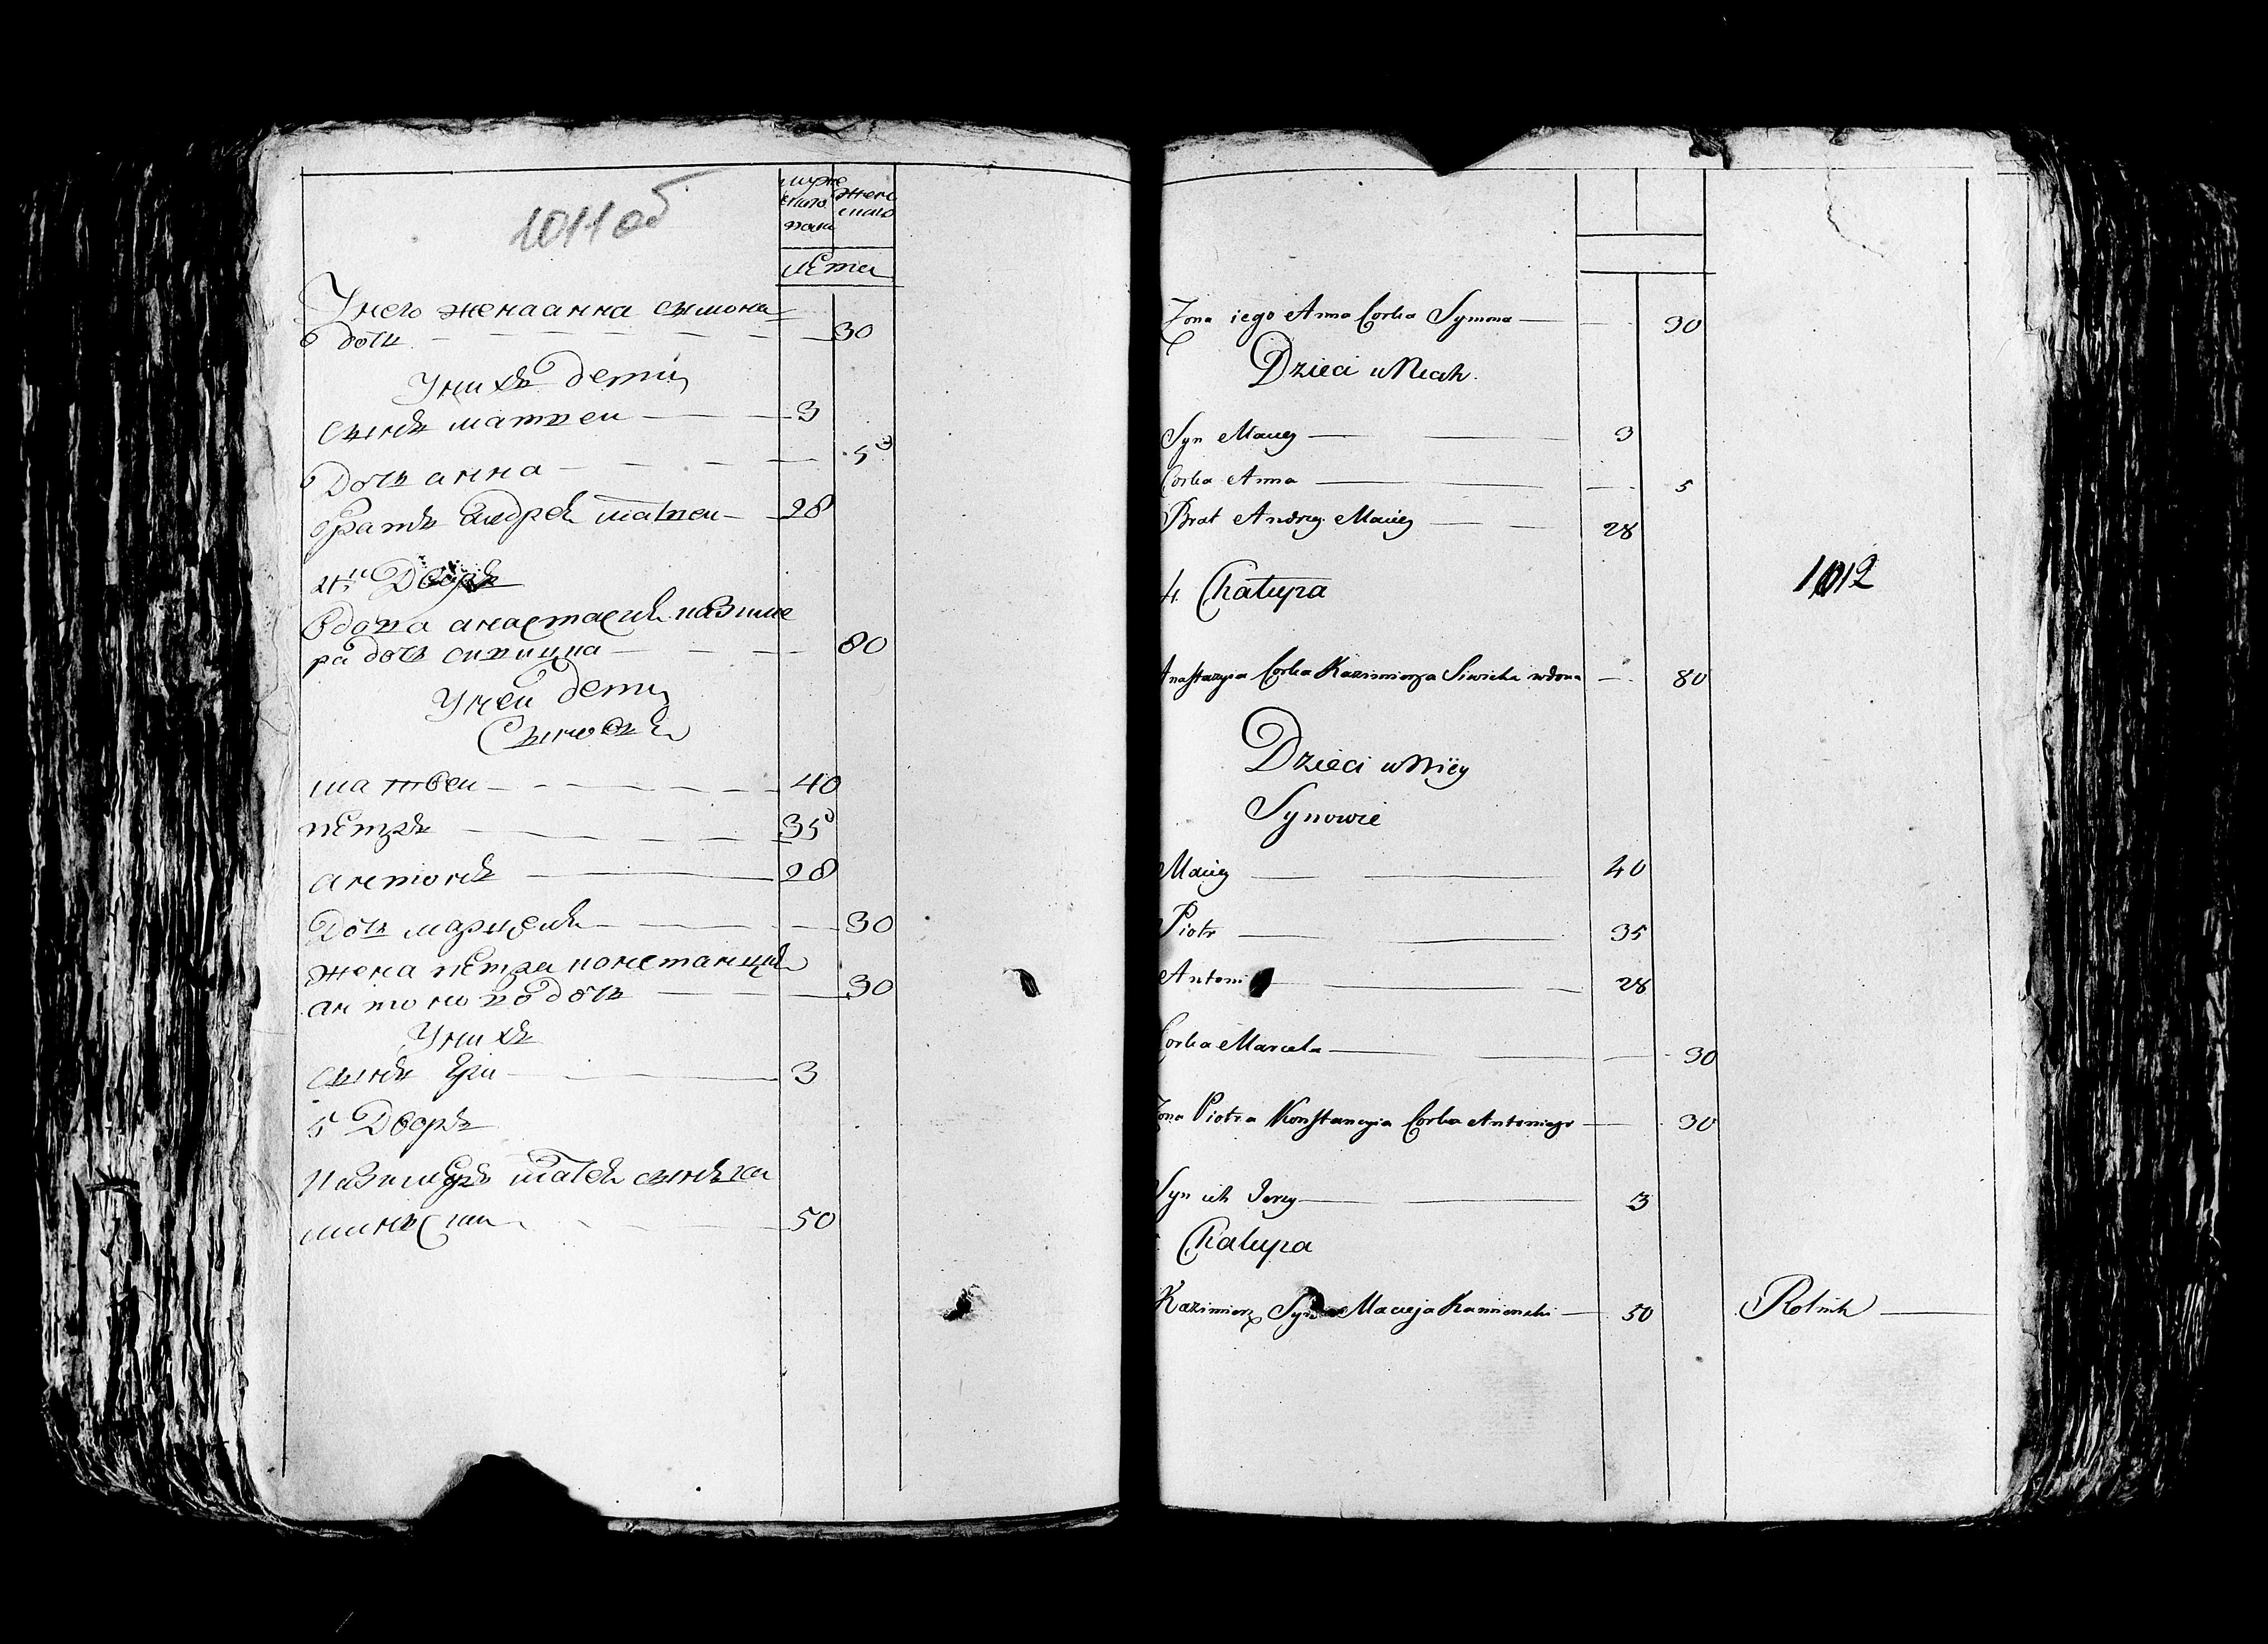 1011 об
муже
скаго
пола
женс
скаго
лета
У него жена анна сымона
дочь 30
У нихъ дети
сынъ матвеи 3
Дочь анна 5
братъ андреи матвеи 28
4 Дворъ
вдова анастасия казиме
ра дочь сивицка 80
У неи дети
Сыновья
матвеи 40
петръ 35
антонъ 28
Дочь марцеля 30
жена петра констанция
антонова дочь 30
У нихъ
сынъ юри 3
5 Дворъ
Казимеръ матея сынъ ка
минскии 50
Zona iego Anna Corka Symona 30
Dzieci u Niech
Syn Maciey 3
Corka Anna 5
Brat Andrzey Maciey 28
4 Chałupa
1012
Anastazyia Corka Kazimierza Siwicka wdowa 80
Dzieci u Niey
Synowie
Maciey 40
Piotr 35
Antoni 28
Corka Marcela 30
Zona Piotra Konstancyia Corka Antoniego 30
Syn ich Jerzy 3
Chałupa
Kazimierz Syn Macieja Kamienski 50 Rolnik